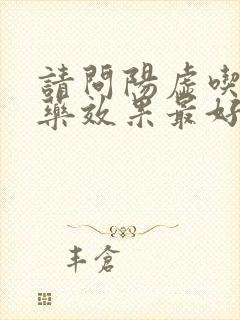 請問陽虛喫
藥效果最好
丰倉